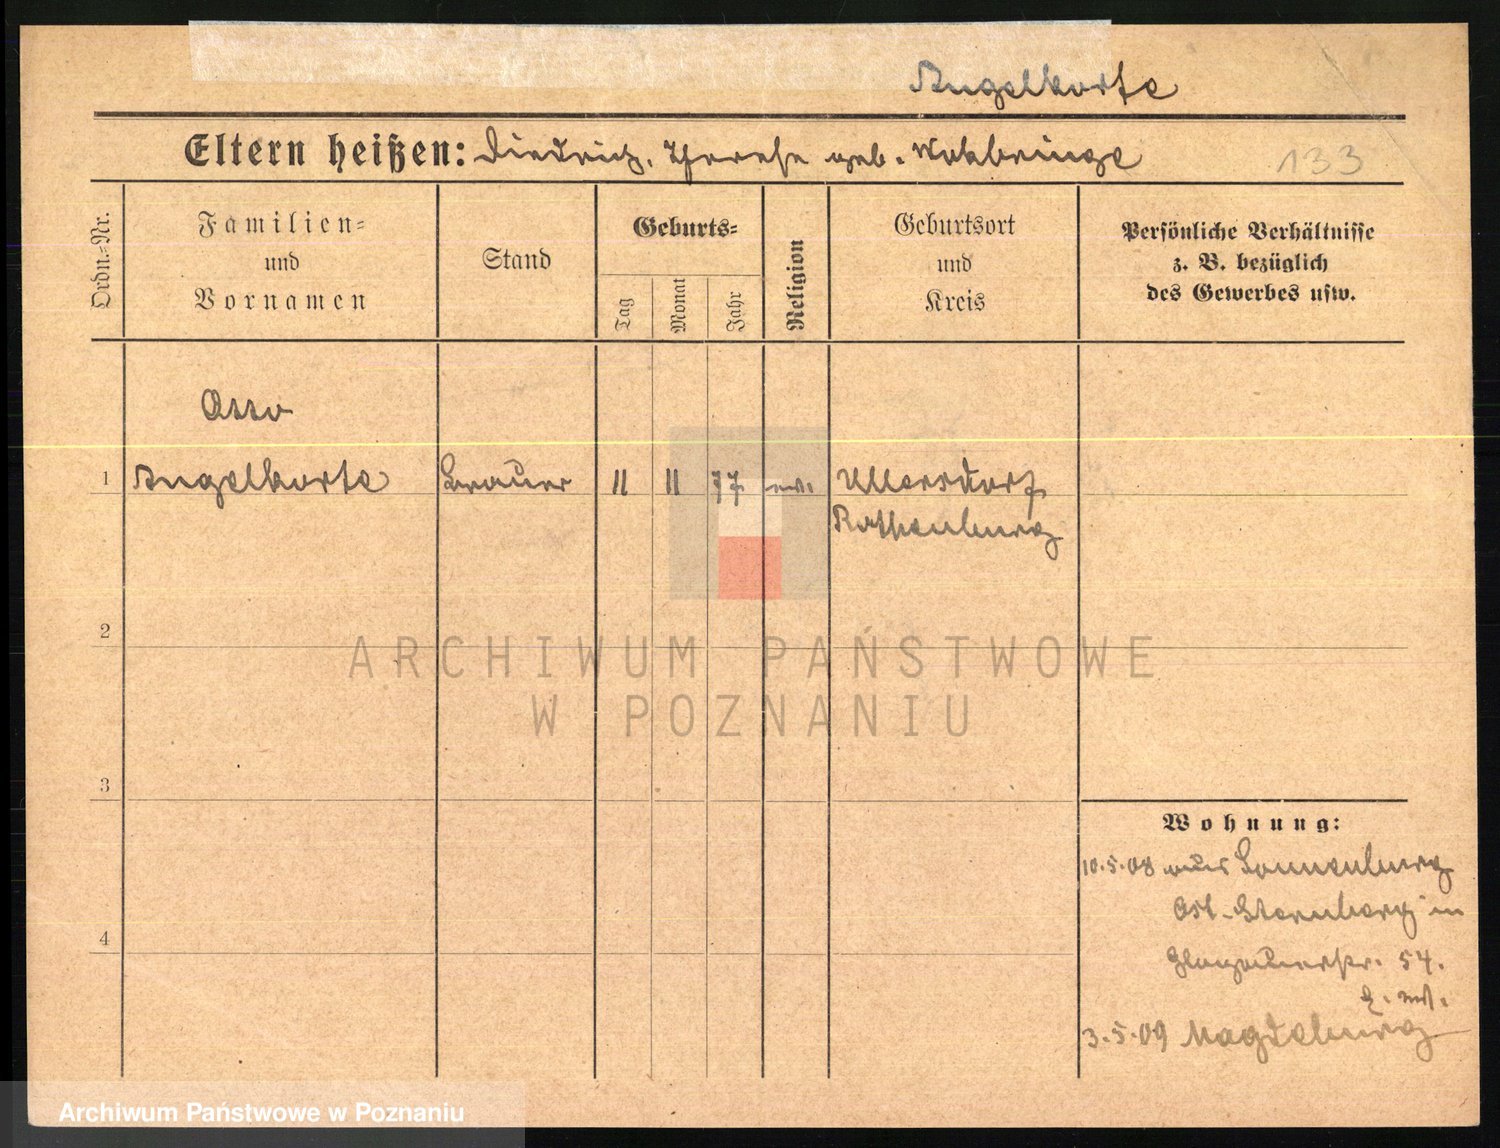 Angelkorte
Eltern heißen: Diedrich, Therese geb. Wobbeinge
133
Ordn.-Nr.
Familien-
und
Vornamen
Stand
Geburts-
Tag
Monat
Jahr
Religion
Geburtsort
und
Kreis
Persönliche Verhältnisse
z. B. bezüglich
des Gewerbes usw.
Otto
1 Angelkorte Brauer 11 11 77 ev. Ullersdorf
Rothenburg
2
ARCHIWUM PAŃSTWOWE
W POZNANIU
3
Wohnung:
10.5.08 aus Sonnenburg
Ost-Sternberg in
4
Glogauerstr. 54.
3.5.09 Magdeburg
Archiwum Państwowe w Poznaniu